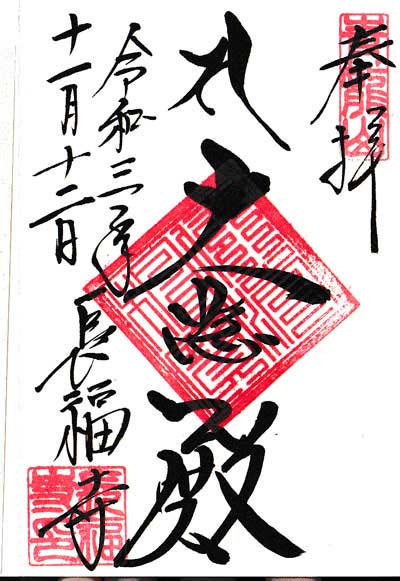 奉拝
大悲殿
令和三年
十一月十二日
長福寺